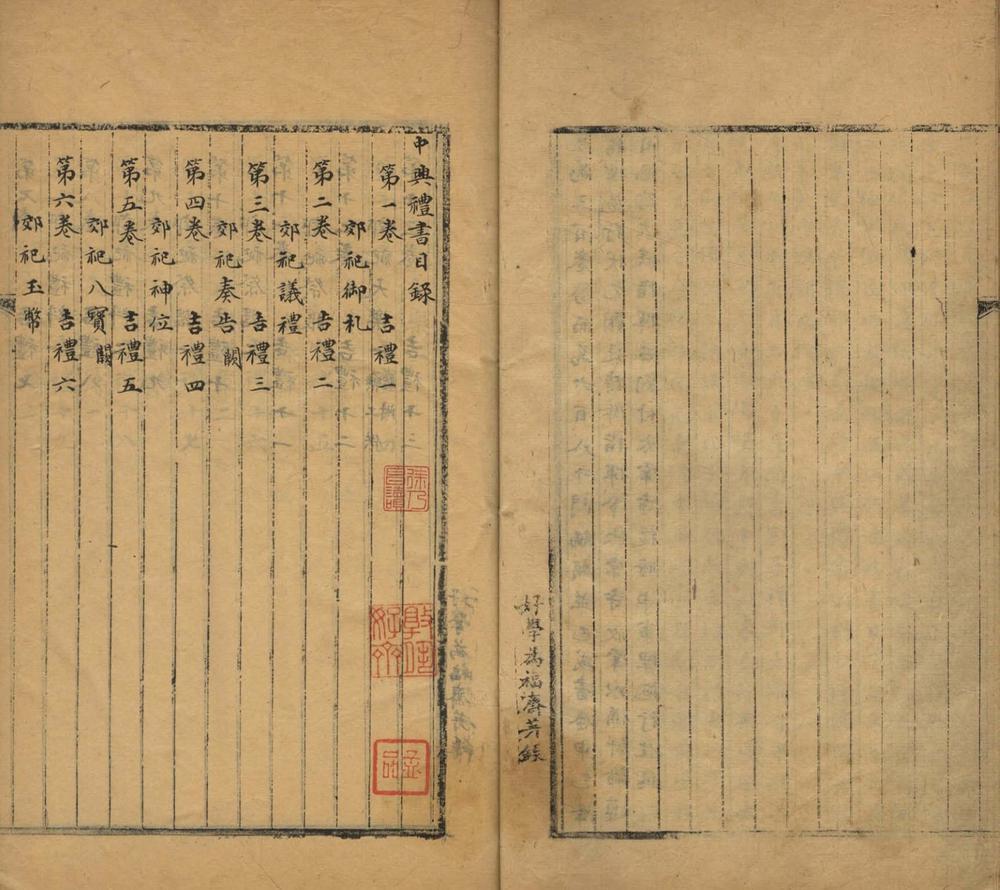 好學為福齋鈔錄
中興禮書目錄
第一卷 吉禮一
郊祀御札
第二卷 吉禮二
郊祀議禮
第三卷 吉禮三
郊祀奏告 闕
第四卷 吉禮四
郊祀神位
第五卷 吉禮五
郊祀八寶 闕
第六卷 吉禮六
郊祀玉幣